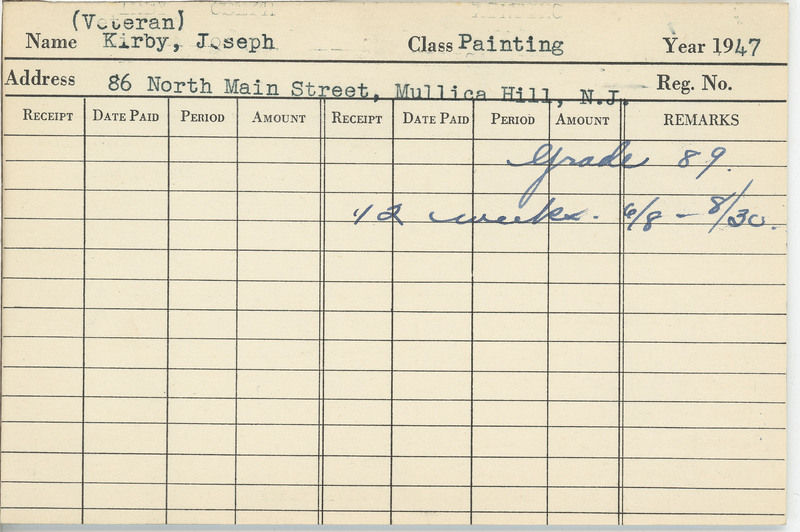 (Veteran)
Name Kirby, Joseph Class Painting Year 1947
Address 86 North Main Street, Mullica Hill, N.J. Reg. No.
RECEIPT DATE PAID PERIOD AMOUNT RECEIPT DATE PAID PERIOD AMOUNT REMARKS
Grade 89.
12 weeks. 6/8 - 8/30.